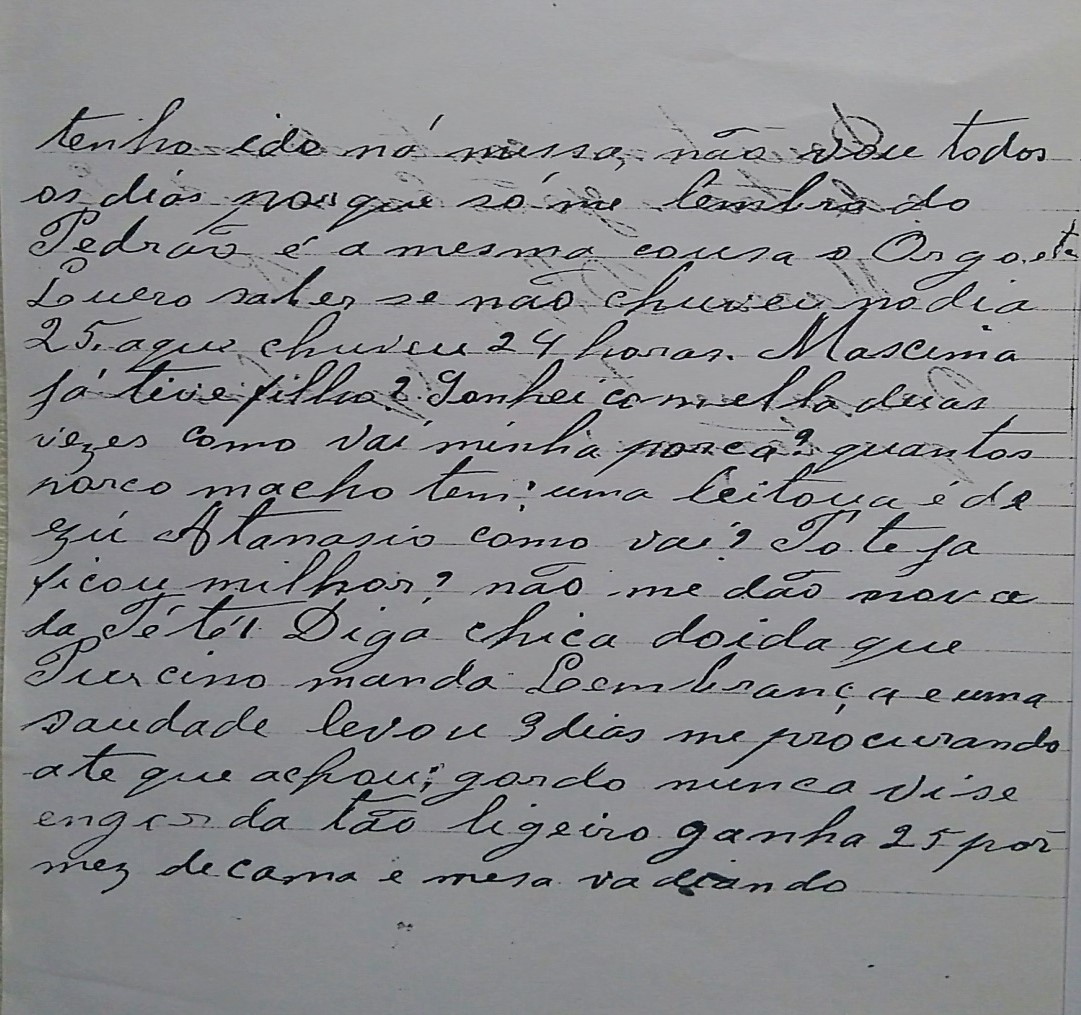 tenho ido ná missa, não vou todos
os dias porque só me lembro do
Pedrão é a mesma cousa o Orgoste
Quero saber se não chuveu no dia
25. aqui chuveu 24 horas. Mascima
já tive filho? Sonhei com ella duas
vezes como vai minha porca? quantos
porco macho tem: uma leitoua é de
zú Atanasio como vai? Tóte ja
ficou milhor? não me dão nova
da Tété! Diga chica doida que
Turcino manda Lembrança e uma
saudade levou 3 dias me procurando
ate que achou; gordo nunca vi se
engorda tão ligeiro ganha 25 por
mez de cama e mesa vadiando